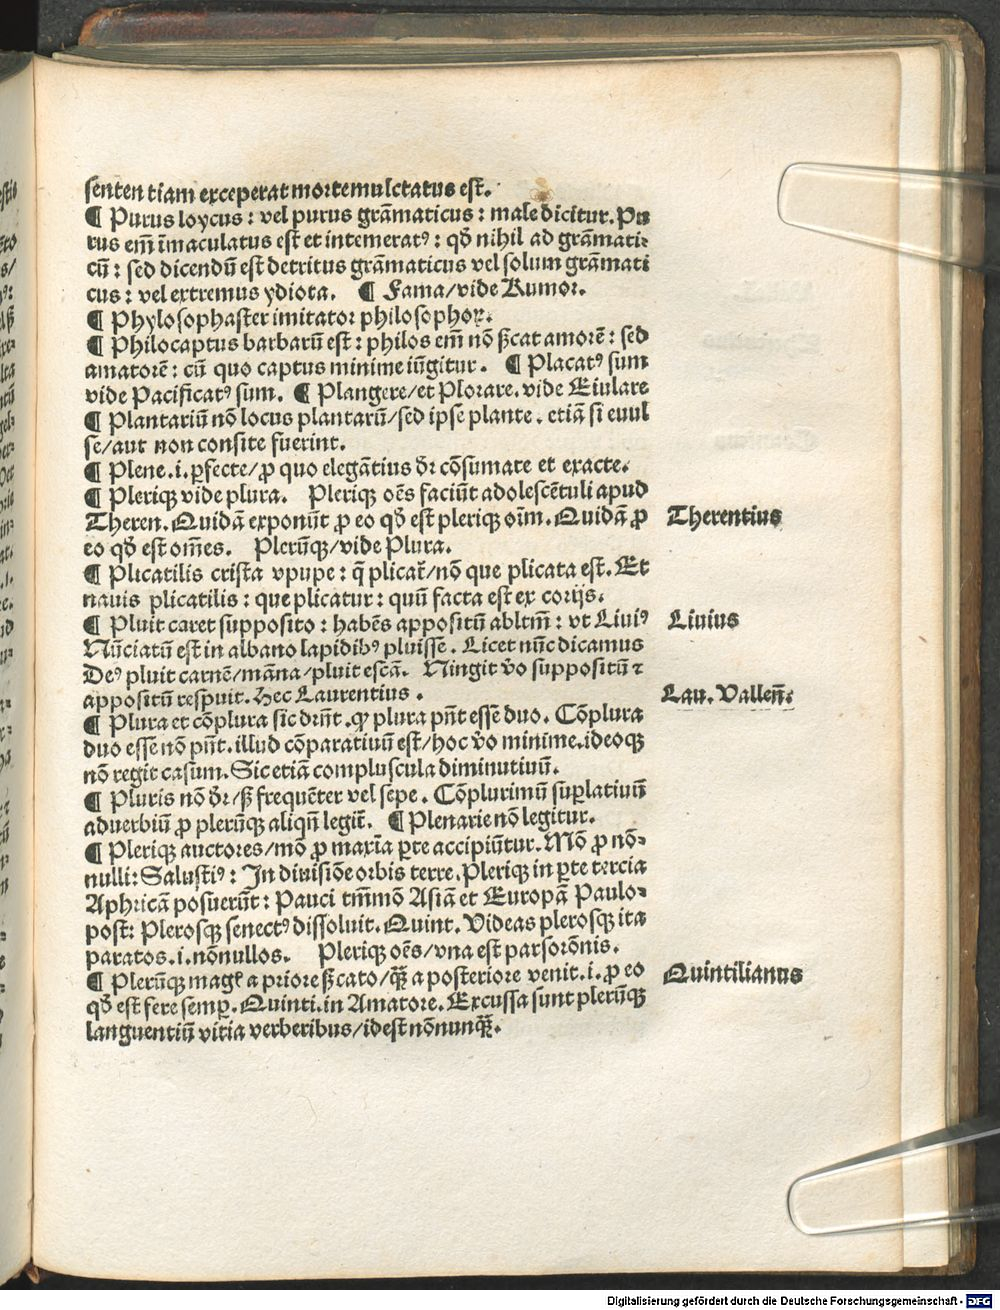 senten tiam exceperat morte mulctatus est.
¶ Purus loycus: vel purus grāmaticus: male dicitur. Pu
rus em̄ īmaculatus est et intemeratꝰ: qđ nihil ad grāmati-
cū: sed dicendū est detritus grāmaticus vel solum grāmati
cus: vel extremus ydiota. ¶ Fama/vide Rumor.
¶ Phylosophaster imitator philosophoꝝ.
¶ Philocaptus barbarū est: philos em̄ nō ſꝫcat amorē: sed
amatorē: cū quo captus minime iūgitur. ¶ Placatꝰ sum
vide Pacificatꝰ sum. ¶ Plangere/et Plorare. vide Eiulare
¶ Plantariū nō locus plantarū/sed ipse plante. etiā si euul
se/aut non consite fuerint.
¶ Plene .i. ꝑfecte/ꝓ quo elegātius dr̄ cōsumate et exacte.
¶ Pleriqꝫ vide plura. Pleriqꝫ oēs faciūt adolescētuli apud
Theren. Quidā exponūt ꝓ eo qđ est pleriqꝫ oīm. Quidā ꝓ
eo qđ est om̄es. Plerūqꝫ/vide Plura.
Therentius
¶ Plicatilis crista vpupe: q̄ plicat̄/nō que plicata est. Et
nauis plicatilis: que plicatur: quū facta est ex corijs.
¶ Pluit caret supposito: habēs appositū abltm̄: vt Liuiꝰ
Nūciatū est in albano lapidibꝰ pluisse. Licet nūc dicamus
Deꝰ pluit carnē/māna/pluit escā. Ningit v̄o suppositū ⁊
appositū respuit. Hec Laurentius.
Liuius
Lau. Vallen̄.
¶ Plura et cōplura sic drn̄t. ꝙ plura pn̄t esse duo. Cōplura
duo esse nō pn̄t. illud cōparatiuū est/hoc v̄o minime. ideoqꝫ
nō regit casum. Sic etiā compluscula diminutiuū.
¶ Pluris nō dr̄/ſꝫ frequēter vel sepe. Cōplurimū suꝑlatiuū
aduerbiū ꝓ plerūqꝫ aliqn̄ legit̄. ¶ Plenarie nō legitur.
¶ Pleriqꝫ auctores/mō ꝓ maxīa ꝑte accipiūtur. Mō ꝓ nō-
nulli: Salustiꝰ: In diuisiōe orbis terre. Pleriqꝫ in ꝑte tercia
Aphricā posuerūt: Pauci tm̄mō Asiā et Europā Paulo-
post: Plerosqꝫ senectꝰ dissoluit. Quint. Videas plerosqꝫ ita
paratos .i. nōnullos. Pleriqꝫ oēs/vna est pars orōnis.
¶ Plerūqꝫ mag̅ a priore ſꝫcato/qꝫ̄ a posteriore venit .i. ꝓ eo
qđ est fere semꝑ. Quinti. in Amatore. Excussa sunt plerūqꝫ
languentiū vitia verberibus/idest nōnunqꝫ̄.
Quintilianus
Digitalisierung gefördert durch die Deutsche Forschungsgemeinschaft - DFG